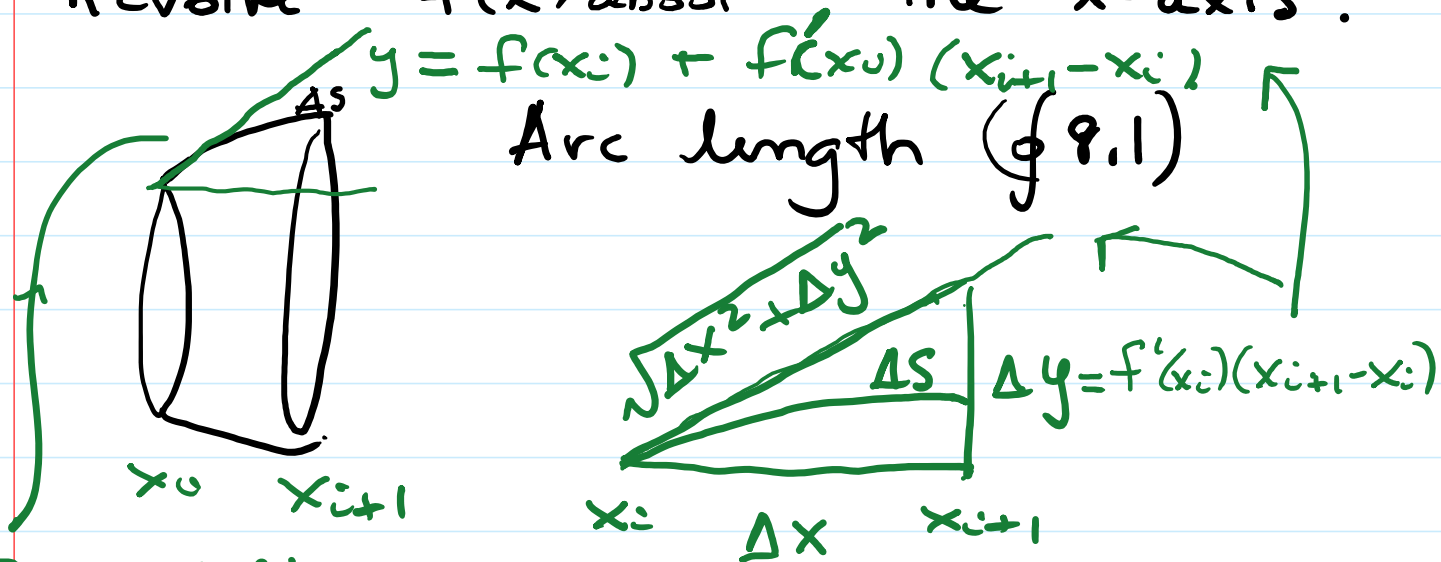 Revolve f(x) about the x-axis.
y = f(xi) + f'(x0) (xi+1 - xi)
Δs
Arc length (∮ 8.1)
√Δx² + Δy²
ΔS
Δy = f'(xi)(xi+1 - xi)
x0 xi+1
xi Δx xi+1